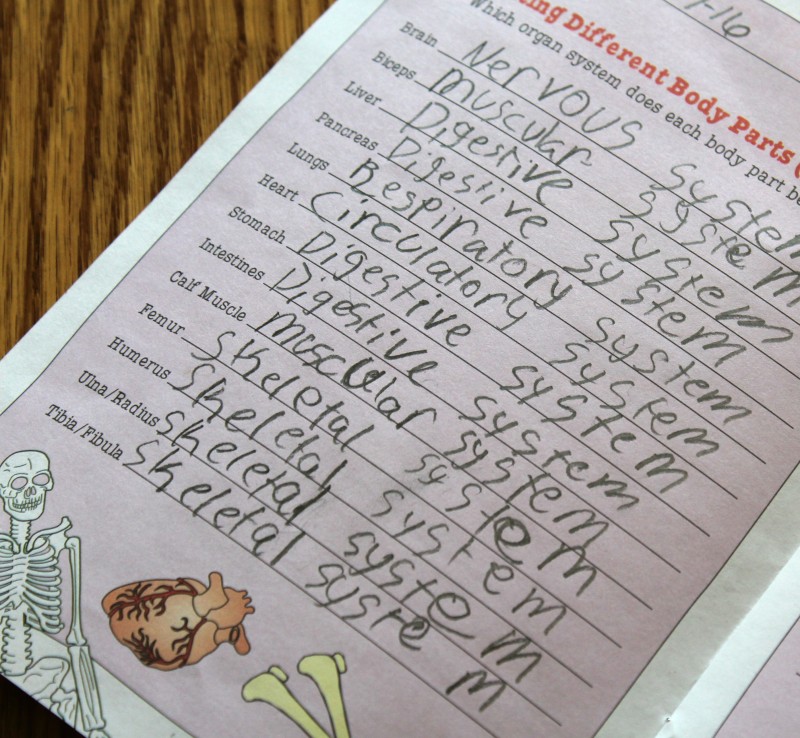 1-16
ing Different Body Parts
Which organ system does each body part be
Brain Nervous system
Biceps Muscular system
Liver Digestive system
Pancreas Digestive system
Lungs Respiratory system
Heart Circulatory system
Stomach Digestive system
Intestines Digestive system
Calf Muscle Muscular system
Femur Skeletal system
Humerus Skeletal system
Ulna/Radius Skeletal system
Tibia/Fibula Skeletal system